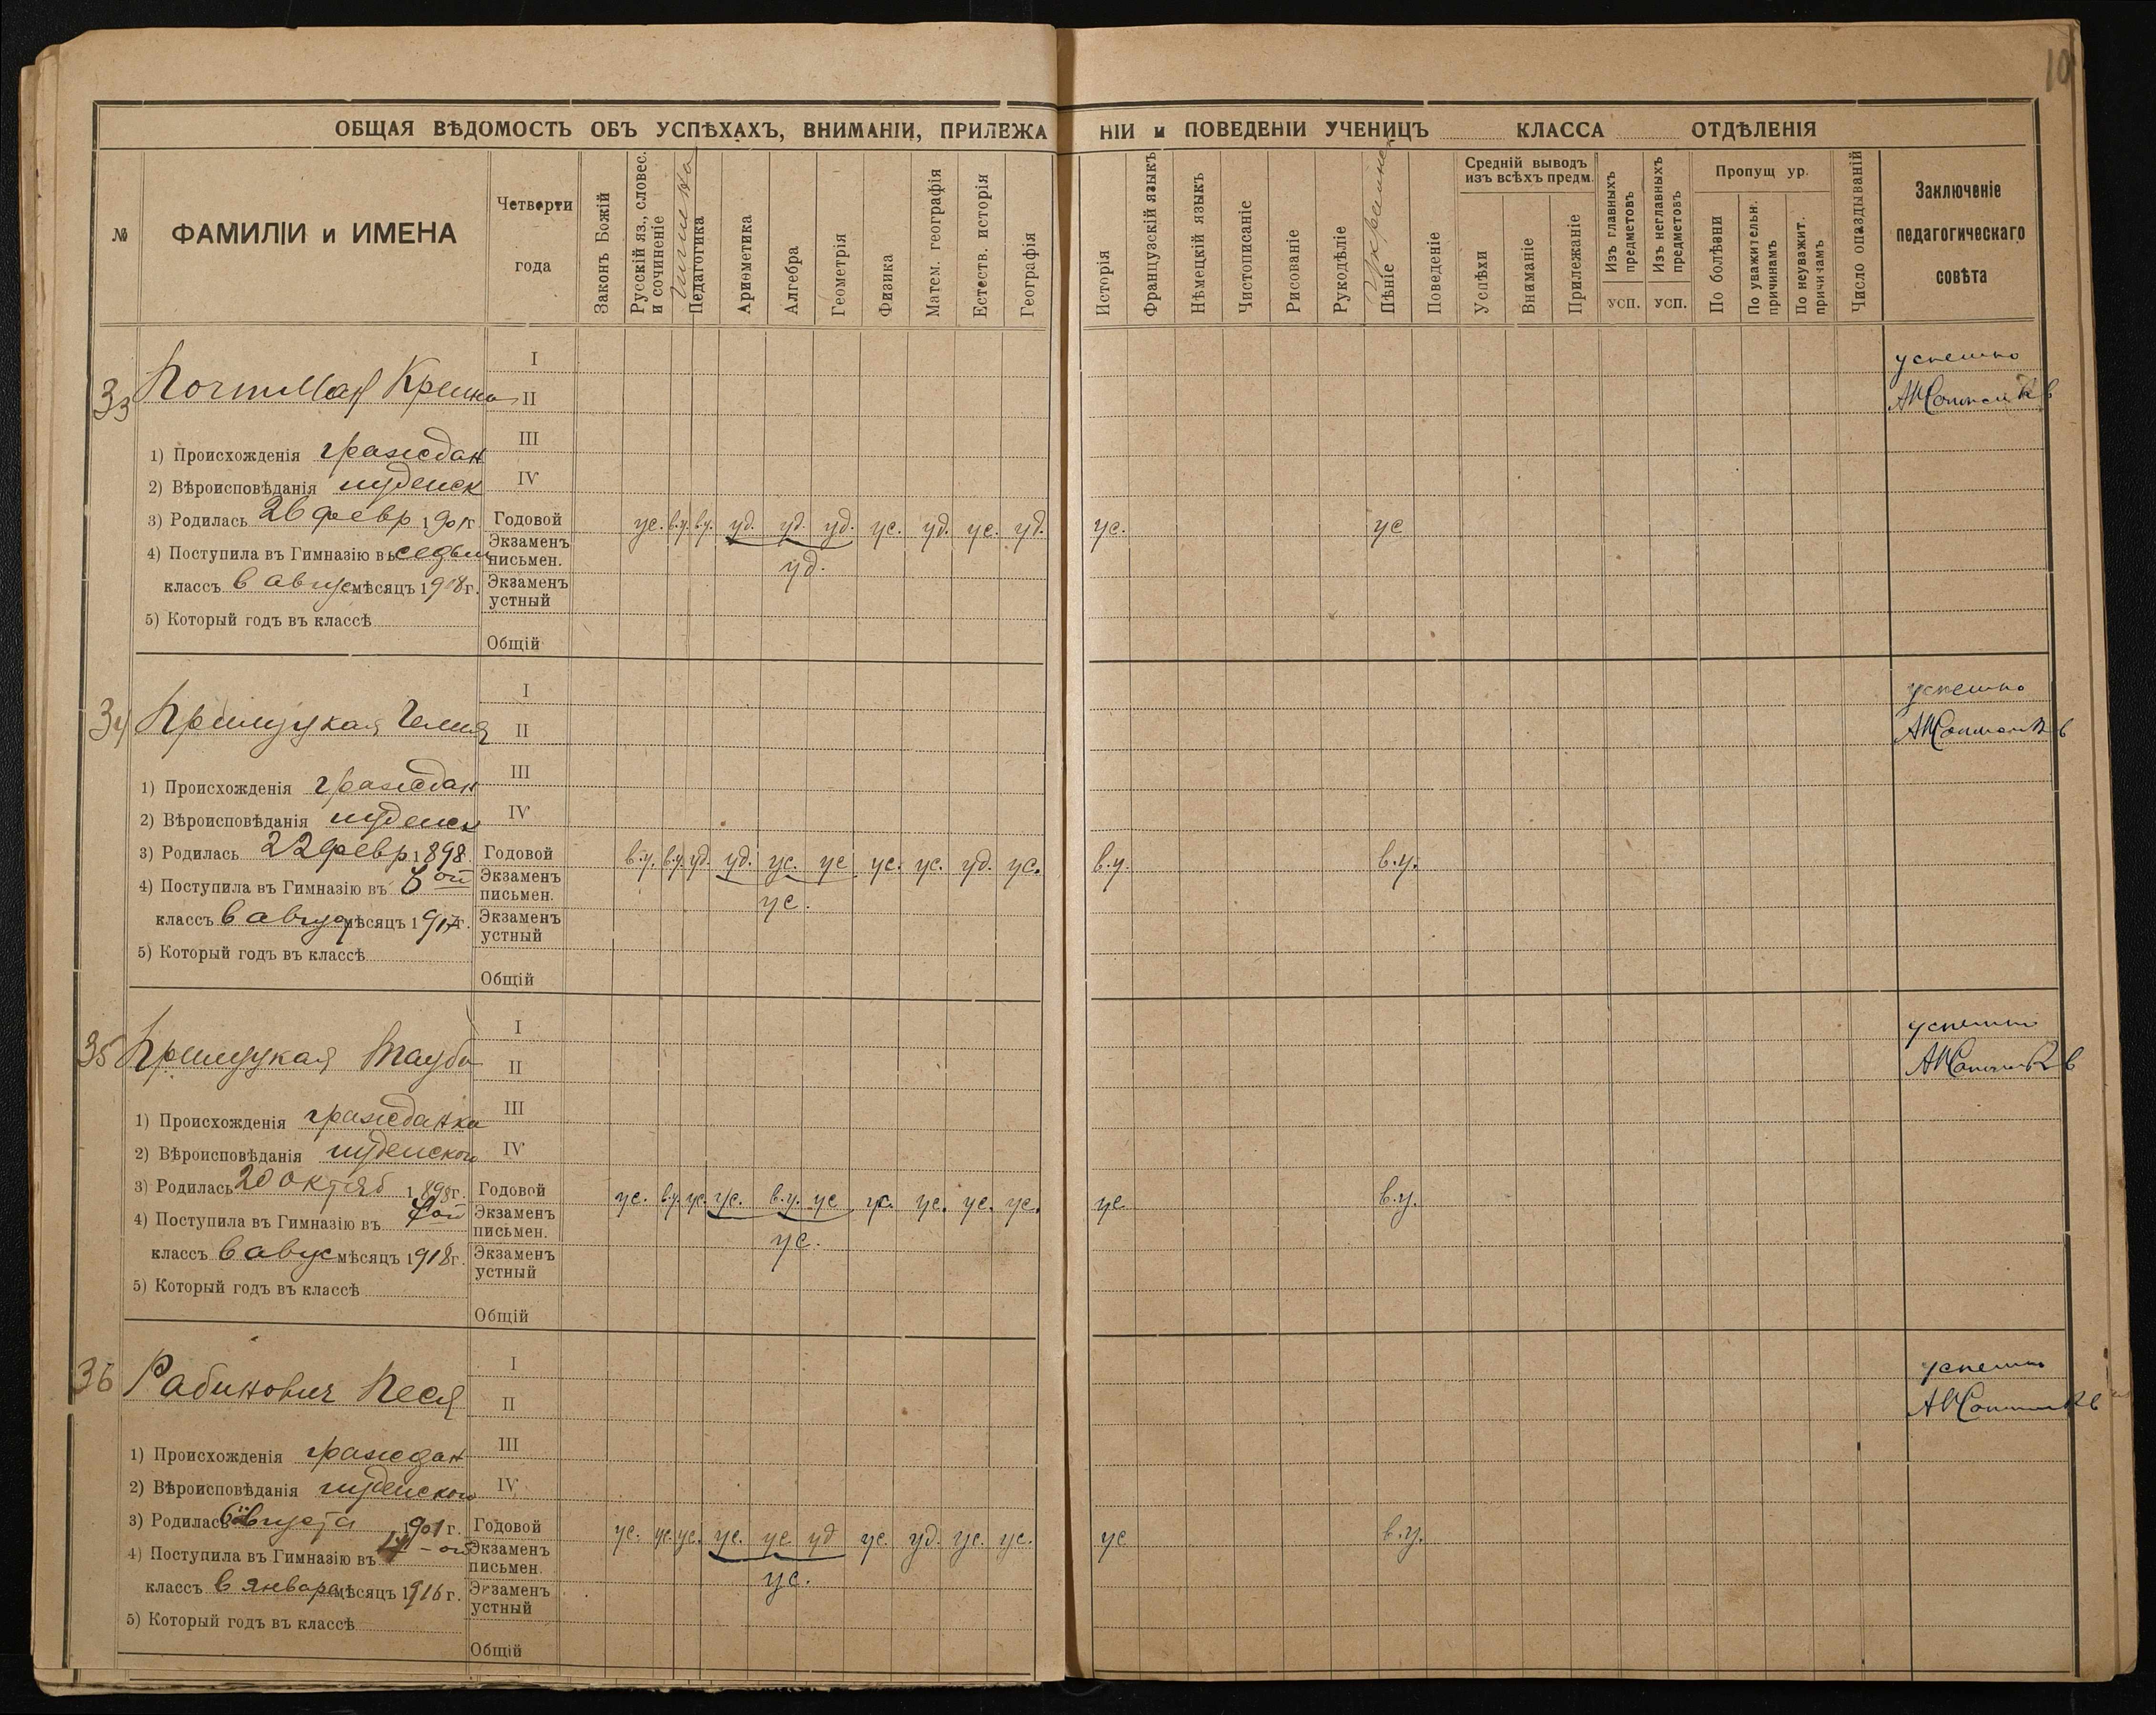 10
ОБЩАЯ ВѢДОМОСТЬ ОБЪ УСПѢХАХЪ, ВНИМАНІИ, ПРИЛЕЖА НІИ и ПОВЕДЕНІИ УЧЕНИЦЪ КЛАССА ОТДѢЛЕНІЯ
№
ФАМИЛІИ и ИМЕНА
Четверти
года
Законъ Божій
Русскій яз., словес.
и сочиненіе
Педагогика
Ариѳметика
Алгебра
Геометрія
Физика
Матем. географія
Естеств. исторія
Географія
Исторія
Французскій языкъ
Нѣмецкій языкъ
Чистописаніе
Рисованіе
Рукодѣліе
Пѣніе
Поведеніе
Средній выводъ
изъ всѣхъ предм.
Успѣхи
Вниманіе
Прилежаніе
Изъ главныхъ
предметовъ
усп.
Изъ неглавныхъ
предметовъ
усп.
Пропущ ур.
По болѣзни
По уважительн.
причинамъ
По неуважит.
причинамъ
Число опаздываній
Заключеніе
педагогическаго
совѣта
33
I
успешно
II
III
1) Происхожденія граждан
2) Вѣроисповѣданія иудейск
IV
3) Родилась 26 февр 1901г.
Годовой ус. в.у. в.у. уд. уд. уд. ус. уд. ус. уд. ус. ус
4) Поступила въ Гимназію въ седьм
Экзаменъ
письмен. уд.
классъ в авгус мѣсяцъ 1918г.
Экзаменъ
устный
5) Который годъ въ классѣ
Общій
34
I
успешно
II
III
1) Происхожденія граждан
2) Вѣроисповѣданія иудейск
IV
3) Родилась 22 февр 1898
Годовой в.у. в.у. уд. уд. ус. ус ус. ус. уд. ус. в.у. в.у.
4) Поступила въ Гимназію въ 6ой
Экзаменъ
письмен. ус.
классъ в авгус мѣсяцъ 1917г.
Экзаменъ
устный
5) Который годъ въ классѣ
Общій
35
Тауба
I
успешно
II
III
1) Происхожденія гражданка
2) Вѣроисповѣданія иудейского
IV
3) Родилась 20 октяб 1898г.
Годовой ус. в.у. ус. ус. в.у. ус ус. ус. ус. ус. ус в.у.
4) Поступила въ Гимназію въ
Экзаменъ
письмен. ус.
классъ в авгус мѣсяцъ 1918г.
Экзаменъ
устный
5) Который годъ въ классѣ
Общій
36 Рабинович Песя
I
успешно
II
III
1) Происхожденія граждан
2) Вѣроисповѣданія иудейского
IV
3) Родилась августа 1901г.
Годовой ус. ус. ус. ус. ус уд ус. уд. ус. ус. ус в.у.
4) Поступила въ Гимназію въ
Экзаменъ
письмен. ус.
классъ в январе мѣсяцъ 1916г.
Экзаменъ
устный
5) Который годъ въ классѣ
Общій